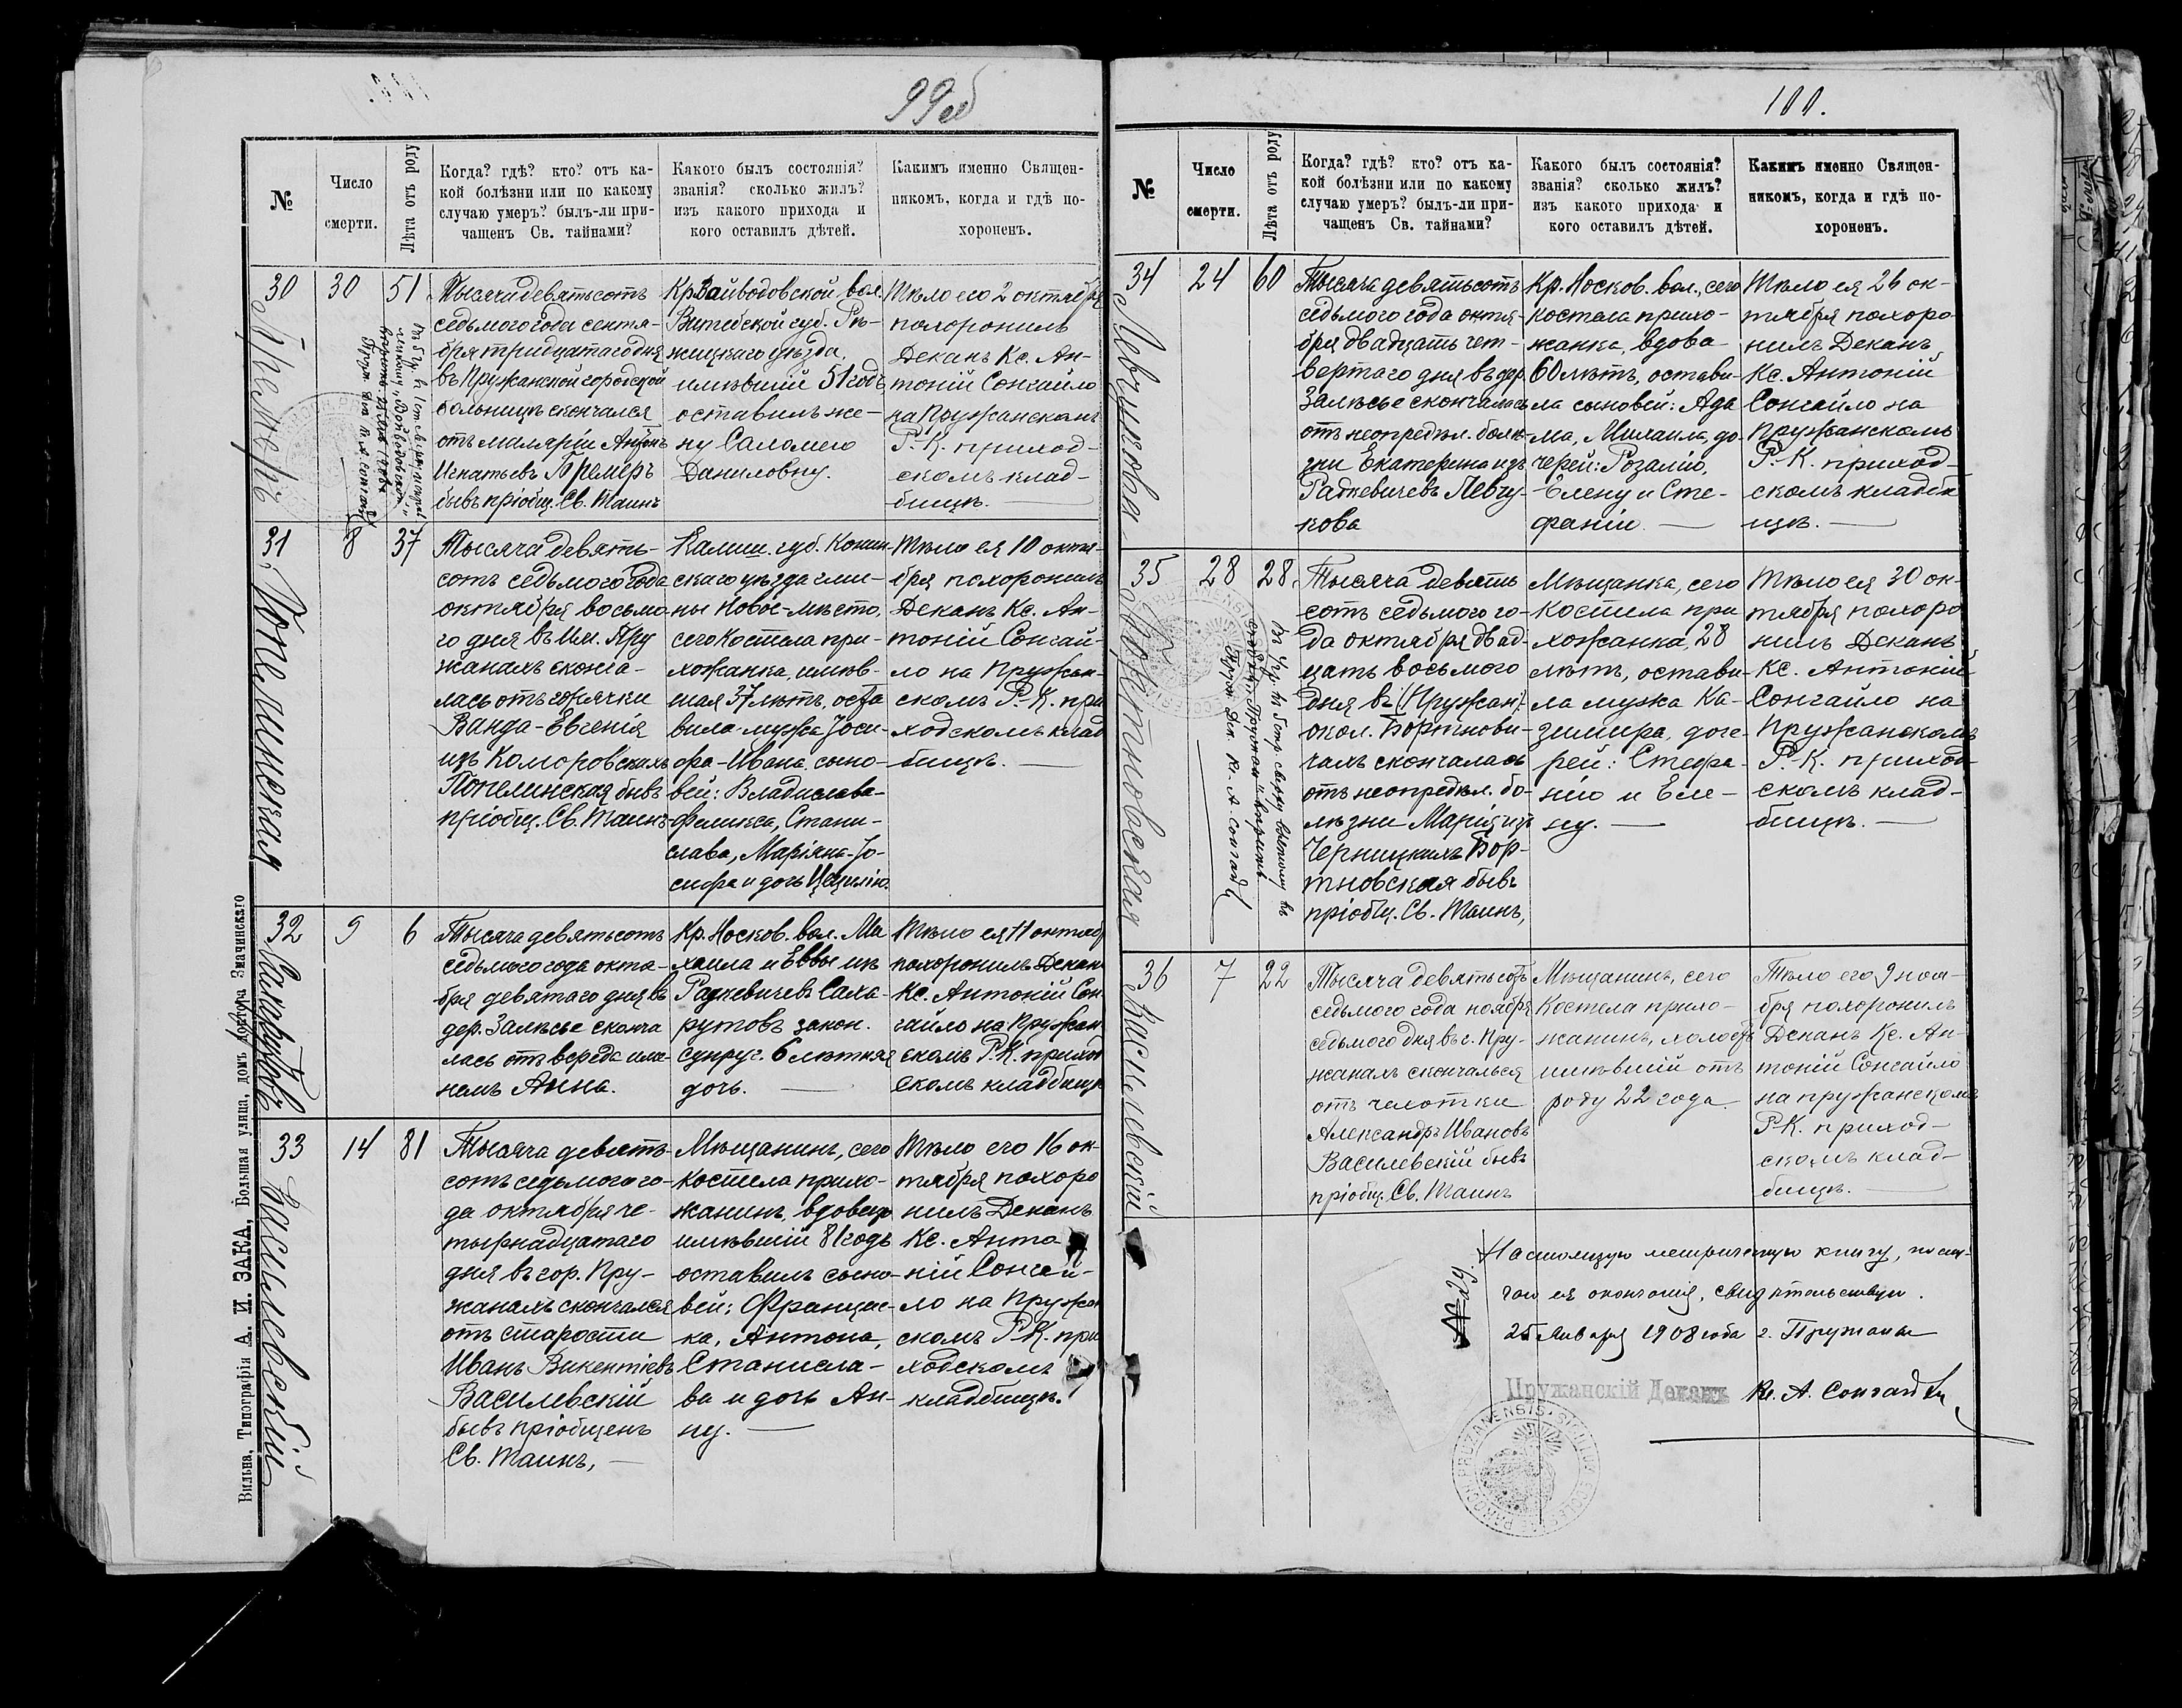 99об
№
Число
смерти.
Лѣта отъ роду
Когда? гдѣ? кто? отъ ка-
кой болѣзни или по какому
случаю умеръ? былъ-ли при-
чащенъ Св. тайнами?
Какого былъ состоянія?
званія? сколько жилъ?
изъ какого прихода и
кого оставилъ дѣтей.
Какимъ именно Священ-
никомъ, когда и гдѣ по-
хороненъ.
30
30
51
Тысяча девятьсотъ
седьмого года сентя-
бря тридцатаго дня
въ Пружанской городской
больницѣ скончался
отъ маляріи Антонъ
Игнатьевъ Бремеръ
бывъ пріобщ. Св. Таинъ
Кр. Вайводовской вол.
Витебской губ. Рѣ-
жицкаго уѣзда,
имѣвшій 51 годъ,
оставилъ же-
ну Саломею
Даниловну.
Тѣло его 2 октября
похоронилъ
Деканъ Кс. Ан-
тоній Сонгайло
на Пружанскомъ
Р.-К. приход-
скомъ клад-
бищѣ.
31
8
37
Попелинская
Тысяча девять-
сотъ седьмого года
октября восьмо-
го дня въ им. Пру
жанахъ сконча-
лась отъ горячки
Ванда-Евгенія
изъ Коморовскихъ
Попелинская бывъ
пріобщ. Св. Таинъ
Калиш. губ. Конин-
скаго уѣзда гми-
ны Новое-мѣсто,
сего Костела при-
хожанка, имѣв-
шая 37 лѣтъ, оста
вила мужа Іоси-
фа-Ивана, сыно-
вей: Владислава-
Феликса, Стани-
слава, Маріана-Іо-
сифа и дочь Цецилію.
Тѣло ея 10 октя-
бря похоронилъ
Деканъ Кс. Ан-
тоній Сонгай-
ло на Пружан-
скомъ Р.-К. при
ходскомъ клад
бищѣ.
32
9
6
Сахарутовъ
Тысяча девятьсотъ
седьмого года октя-
бря девятаго дня въ
дер. Залѣсье сконча
лась отъ вереда име-
немъ Анна.
Кр. Носков. вол. Ми
хаила и Еввы изъ
Радкевичевъ Саха-
рутовъ закон.
супруг. 6 лѣтняя
дочь.
Тѣло ея 11 октяб
похоронилъ Декан
Кс. Антоній Сон
гайло на Пружан
скомъ Р.К. приход
скомъ кладбищѣ
33
14
81
Василевскій
Тысяча девять-
сотъ седьмого го-
да октября че-
тырнадцатаго
дня въ гор. Пру-
жанахъ скончался
отъ старости
Иванъ Викентіевъ
Василевскій
бывъ пріобщенъ
Св. Таинъ,
Мѣщанинъ, сего
костела прихо-
жанинъ, вдовецъ
имѣвшій 81 годъ
оставилъ сыно-
вей: Францис-
ка, Антона,
Станисла-
ва и дочь Ан-
ну.
Тѣло его 16 ок-
тября похоро
нилъ Деканъ
Кс. Анто
ній Сонгай-
ло на Пружан
скомъ Р.К. при
ходскомъ
кладбищѣ.
Вильна, Типографія А. И. ЗАКА, Большая улица, домъ доктора Значинскаго
100.
№
Число
смерти.
Лѣта отъ роду
Когда? гдѣ? кто? отъ ка-
кой болѣзни или по какому
случаю умеръ? былъ-ли при-
чащенъ Св. тайнами?
Какого былъ состоянія?
званія? сколько жилъ?
изъ какого прихода и
кого оставилъ дѣтей.
Какимъ именно Священ-
никомъ, когда и гдѣ по-
хороненъ.
34
24
60
Левчукова
Тысяча девятьсотъ
седьмого года октя-
бря двадцать чет-
вертаго дня въ дер.
Залѣсье скончалась
отъ неопредѣл. болѣ-
зни Екатерина изъ
Радкевичевъ Левчу-
кова
Кр. Носков. вол., сего
костела прихо-
жанка, вдова
60 лѣтъ, остави-
ла сыновей: Ада
ма, Михаила, до-
черей: Розалію,
Елену и Сте-
фанію.
Тѣло ея 26 ок-
тября похоро
нилъ Деканъ
Кс. Антоній
Сонгайло на
Пружанскомъ
Р.-К. приход-
скомъ кладби
щѣ.
35
28
28
Бортновская
Тысяча девять
сотъ седьмого го-
да октября двад-
цать восьмого
дня въ (Пружан)
окол. Бортнови-
чахъ скончалась
отъ неопредѣл. бо-
лѣзни Марія изъ
Черницкихъ Бор-
тновская бывъ
пріобщ. Св. Таинъ,
Мѣщанка, сего
Костела при
хожанка, 28
лѣтъ, остави-
ла мужа Ка-
зимира, доче-
рей: Стефа-
нію и Еле-
ну.
Тѣло ея 30 ок-
тября похоро
нилъ Деканъ
Кс. Антоній
Сонгайло на
Пружанскомъ
Р.К. приход-
скомъ клад-
бищѣ.
36
7
22
Василевскій
Тысяча девятьсотъ
седьмого года ноября
седьмого дня въ г. Пру-
жанахъ скончался
отъ чахотки
Александръ Ивановъ
Василевскій бывъ
пріобщ. Св. Таинъ
Мѣщанинъ, сего
Костела прихо-
жанинъ, холостъ
имѣвшій отъ
роду 22 года.
Тѣло его 9 ноя-
бря похоронилъ
Деканъ Кс. Ан-
тоній Сонгайло
на пружанскомъ
Р.К. приход-
скомъ клад-
бищѣ.
Настоящую метрическую книгу,
ея окончанія, свидѣтельствую.
25 Января 1908 года г. Пружаны
Пружанскій Деканъ Кс. А. Сонгайло